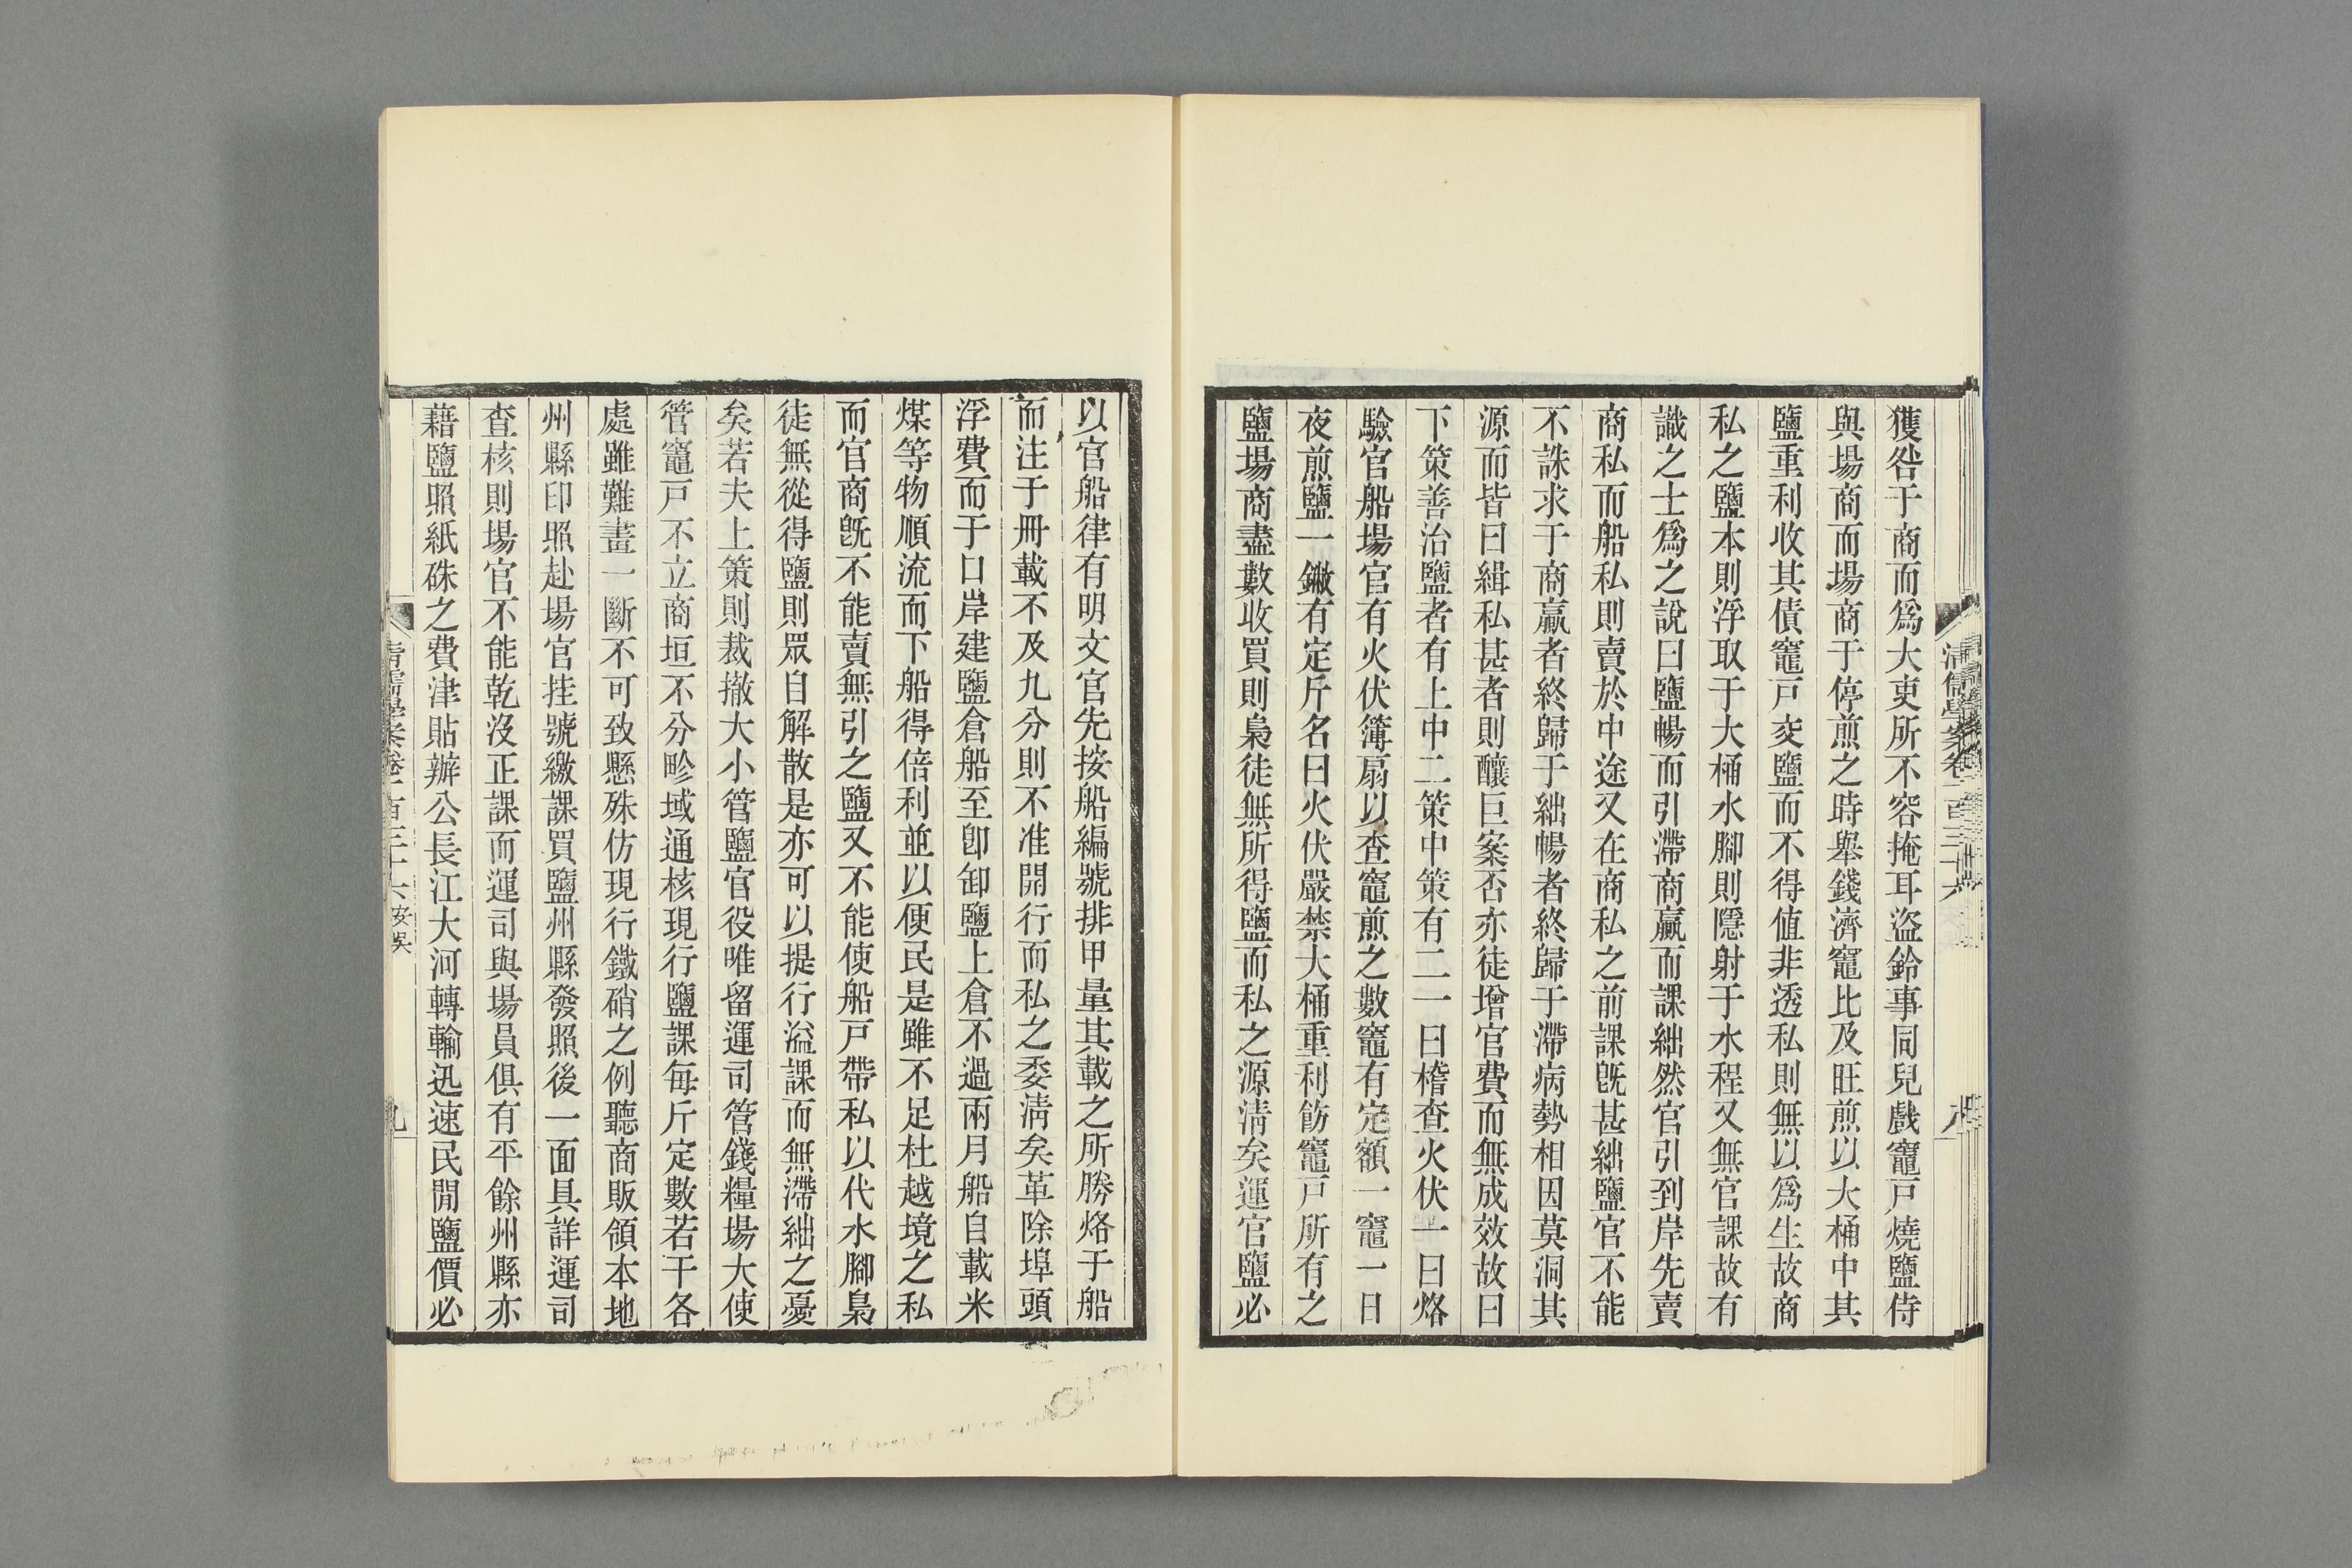 獲咎于商而爲大吏所不容掩耳盜鈴事同兒戲竈戸燒鹽侍
與場商而場商于停煎之時舉錢濟竈比及旺煎以大桶中其
鹽重利收其債竈戸交鹽而不得值非透私則無以爲生故商
私之鹽本則浮取于大桶水腳則隱射于水程又無官課故有
識之士爲之說曰鹽暢而引滯商贏而課絀然官引到岸先賣
商私而船私則賣於中途又在商私之前課旣甚絀鹽官不能
不誅求于商贏者終歸于絀暢者終歸于滯病勢相因莫洞其
源而皆曰緝私甚者則釀巨案否亦徒增官費而無成效故曰
下策善治鹽者有上中二策中策有二一曰稽查火伏一曰烙
驗官船場官有火伏簿扇以查竈煎之數竈有定額一竈一日
夜煎鹽一鍁有定斤名曰火伏嚴禁大桶重利飭竈戸所有之
鹽場商盡數收買則梟徒無所得鹽而私之源淸矣運官鹽必
以官船律有明文官先按船編號排甲量其載之所勝烙于船
而注于冊載不及九分則不准開行而私之委淸矣革除埠頭
浮費而于口岸建鹽倉船至卽卸鹽上倉不過兩月船自載米
煤等物順流而下船得倍利並以便民是雖不足杜越境之私
而官商旣不能賣無引之鹽又不能使船戸帶私以代水腳梟
徒無從得鹽則眾自解散是亦可以提行溢課而無滯絀之憂
矣若夫上策則裁撤大小管鹽官役唯留運司管錢糧場大使
管竈戸不立商垣不分畛域通核現行鹽課每斤定數若干各
處雖難畫一斷不可致懸殊仿現行鐵硝之例聽商販領本地
州縣印照赴場官挂號繳課買鹽州縣發照後一面具詳運司
查核則場官不能乾沒正課而運司與場員俱有平餘州縣亦
藉鹽照紙硃之費津貼辦公長江大河轉輸迅速民閒鹽價必